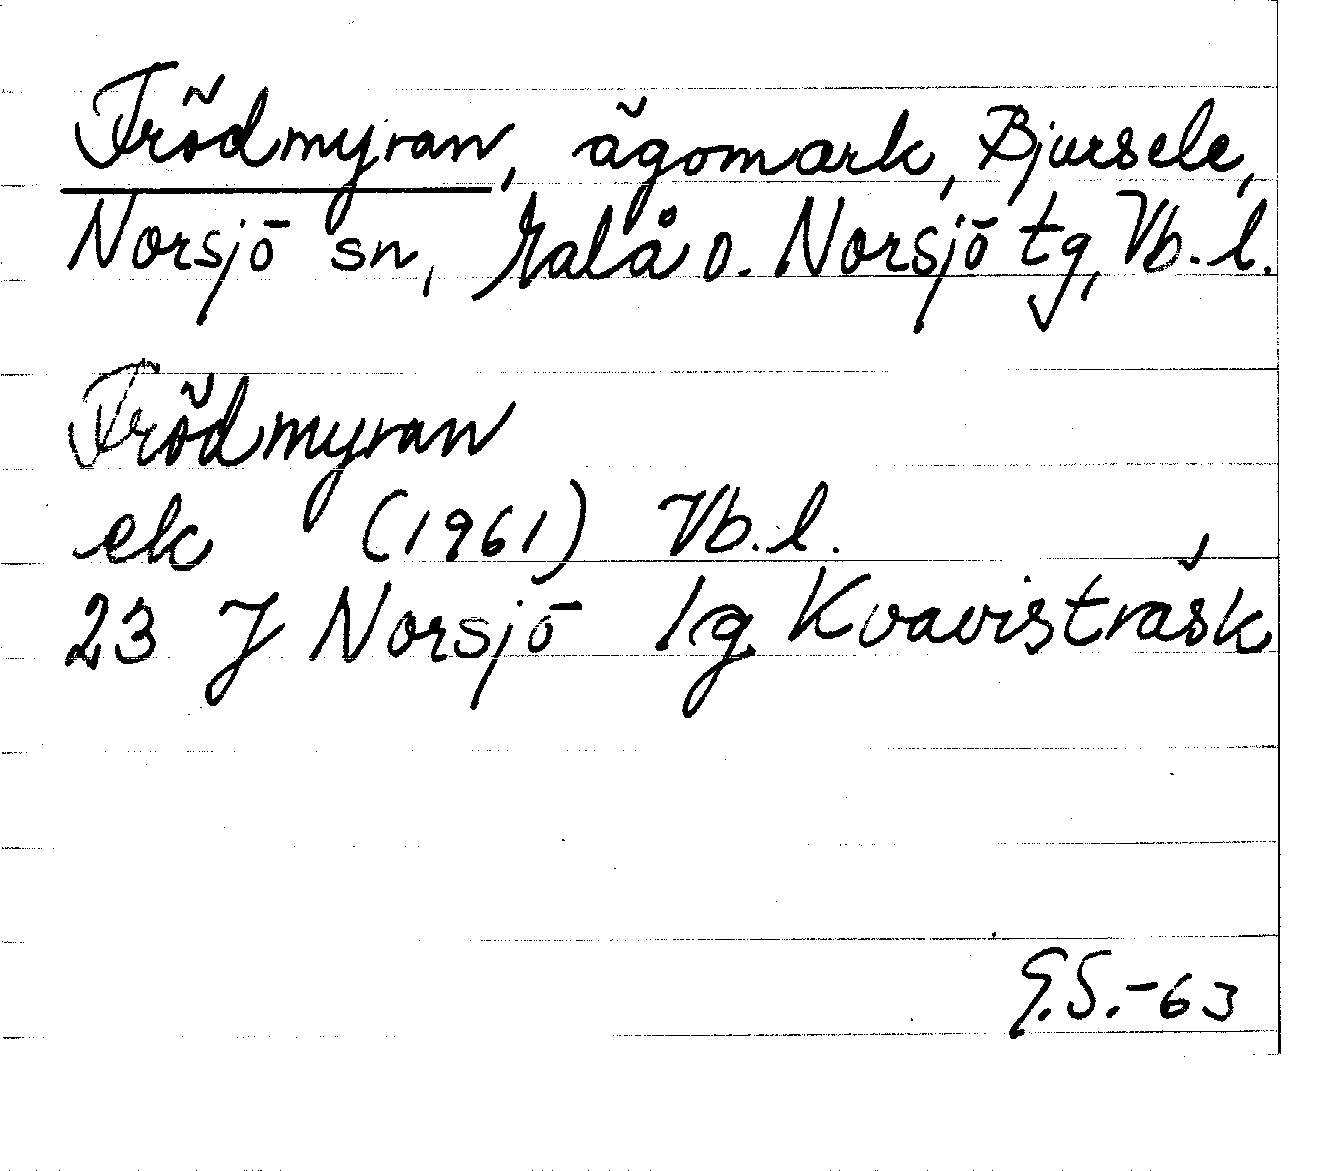 Frödmyran, ägomark, Bjursele,
Norsjö sn, Malå o. Norsjö tg, Vb. l.
Frödmyran
ek (1961) Vb. l.
23 J Norsjö 1g Kvavisträsk
G.S.-63